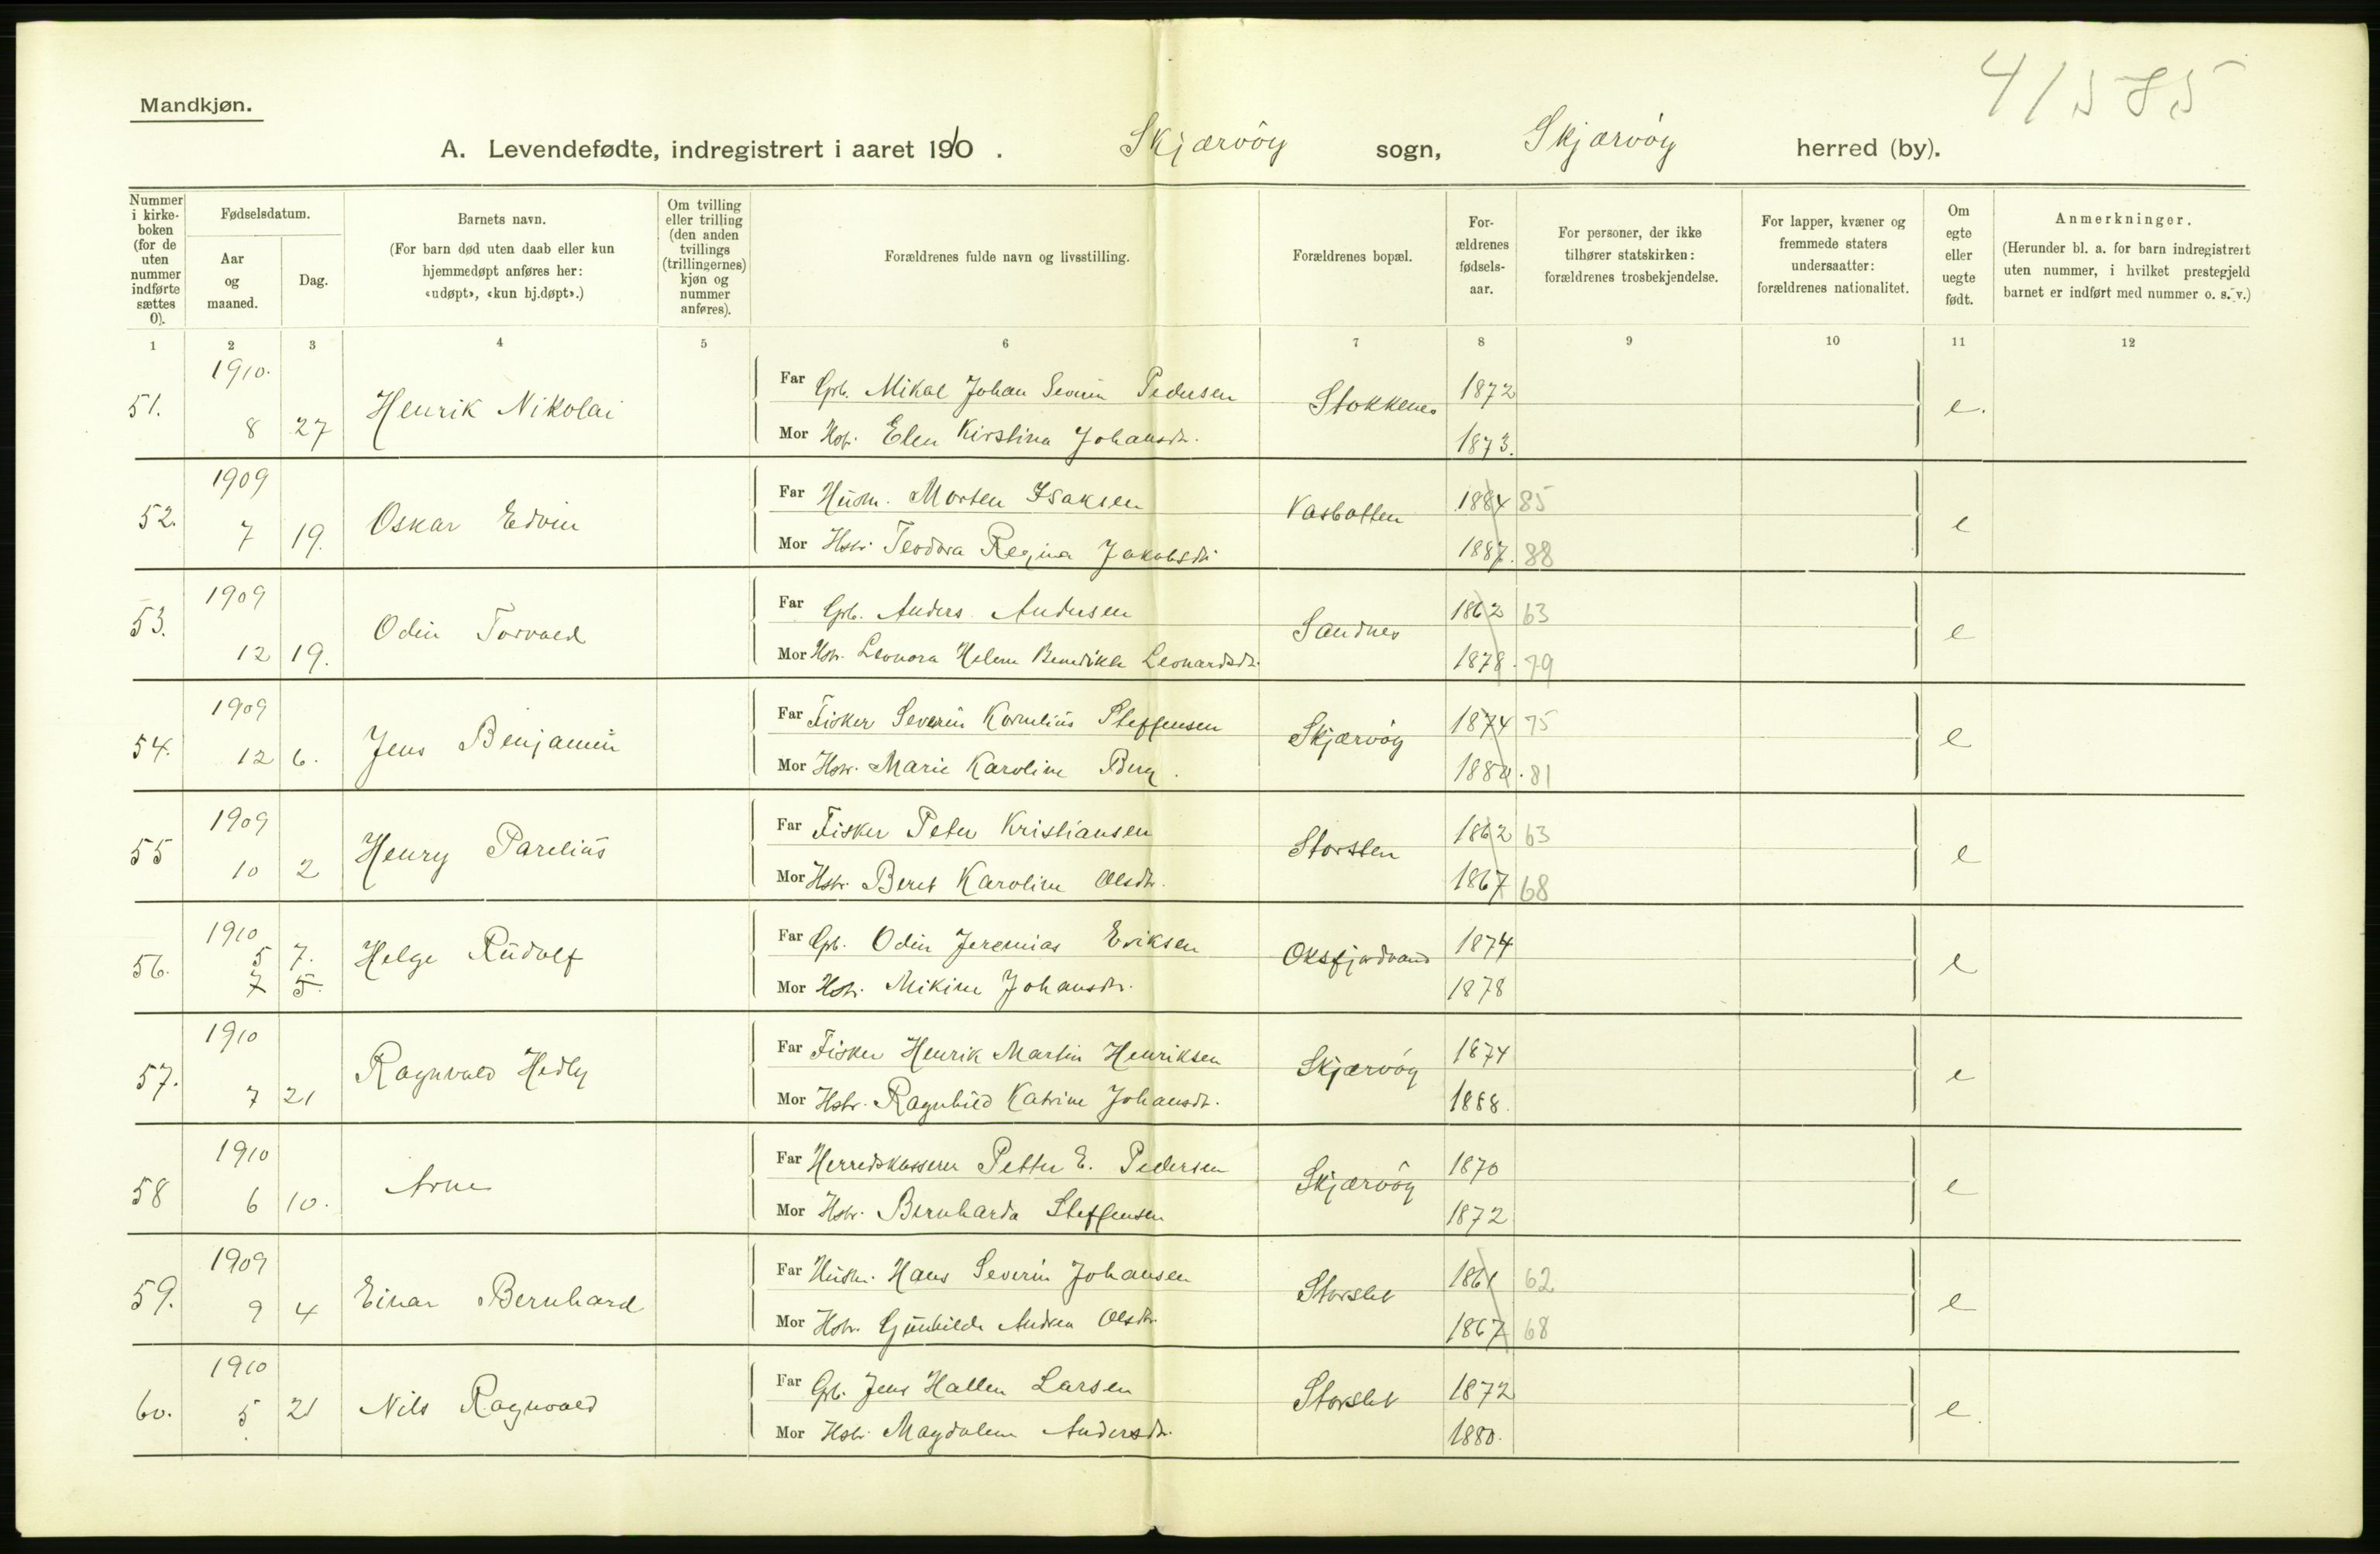 41585
Mandkjøn.
A. Levendefødte, indregistrert i aaret 1910. Skjærvöy sogn, Skjærvöy herred (by).
Nummer i kirke-boken (for de uten nummer indførte sættes 0).
Fødselsdatum.
Aar og maaned.
Dag.
Barnets navn.
(For barn død uten daab eller kun hjemmedøpt anføres her: «udøpt», «kun hj.døpt».)
Om tvilling eller trilling (den anden tvillings (trillingernes) kjøn og nummer anføres).
Forældrenes fulde navn og livsstilling.
Forældrenes bopæl.
For-ældrenes fødsels-aar.
For personer, der ikke tilhører statskirken: forældrenes trosbekjendelse.
For lapper, kvæner og fremmede staters undersaatter: forældrenes nationalitet.
Om egte eller uegte født.
Anmerkninger.
(Herunder bl. a. for barn indregistrert uten nummer, i hvilket prestegjeld barnet er indført med nummer o. s. v.)
1 2 3 4 5 6 7 8 9 10 11 12
51. 1910. 8 27 Henrik Nikolai
Far Gpb. Mikal Johan Severin Pedersen Stokkenes 1872 e.
Mor Hstr. Elen Kirstina Johansdtr. 1873.
52. 1909 7 19. Oskar Edvin
Far Husm. Morten Isaksen Vasbotten 1884 85 e
Mor Hstr. Teodora Regina Jakobsdtr 1887. 88
53. 1909 12 19. Odin Torvald
Far Gpb. Anders Andersen Sandnes 1862 63 e
Mor Hstr. Leonora Helene Benedikte Leonardsdtr. 1878. 79
54. 1909 12 6. Jens Benjamin
Far Fisker Severin Kornelius Steffensen Skjærvöy 1874 75 e
Mor Hstr. Marie Karoline Berg. 1880. 81
55 1909 10 2 Henry Parelius
Far Fisker Peter Kristiansen Storslen 1862 63 e
Mor Hstr. Beret Karoline Olsdtr. 1867 68
56. 1910 5 7. 7 5. Helge Rudolf
Far Gpb. Odin Jeremias Eriksen Oksfjordvand 1874 e
Mor Hstr. Mikine Johansdtr. 1878
57. 1910 7 21 Ragnvald Hedly
Far Fisker Henrik Martin Henriksen Skjærvöy 1874 e
Mor Hstr. Ragnhild Katrine Johansdtr. 1888.
58 1910 6 10. Arne
Far Herredskasserer Petter E. Pedersen Skjærvöy 1870 e
Mor Hstr. Bernharda Steffensen 1872
59. 1909 9 4 Einar Bernhard
Far Husm. Hans Severin Johansen Storslet 1861 62 e
Mor Hstr. Gunhilde Andrea Olsdtr. 1867 68
60. 1910 5 21 Nils Ragnvald
Far Gpb. Jens Hallen Larsen Storslet 1872 e.
Mor Hstr. Magdalene Andersdtr. 1880.